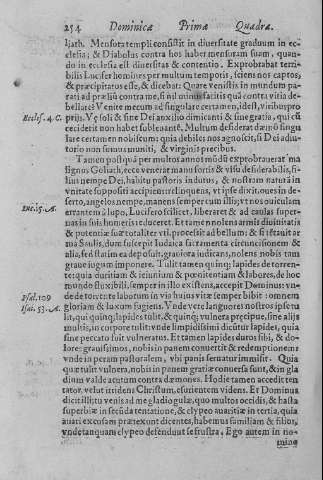 254 Dominicæ Primæ Quadra.
liath. Mensura templi consistit in diuersitate graduum in ec-
clesia; & Diabolus contra hos habet mensuram suam, quan-
do in ecclesia est diuersitas & contentio. Exprobrabat terri-
bilis Lucifer homines per multum temporis, sciens nos captos,
& præcipitatos esse, & dicebat: Quare venistis in mundum pa-
rati ad prælium contra me, si nil quam contra vitia de-
bellare? Venite mecum ad singulare certamen, id est, viribus pro
Eccles. 4. C. prijs. Væ soli & sine Dei auxilio dimicanti & sine gratia, qui cũ
ceciderit non habet subleuantē. Multum desiderat dæmō singu
lare certamen nobiscum: quia debiles nos agnoscit, si Dei adiu-
torio non simus muniti, & virginis precibus.
Tamen postquā per multos annos mōdū exprobauerat ma
lignus Goliath, ecce venerat manu fortis & visu desiderabilis, fi-
lius nempe Dei, habitu pastoris indutus, & nostram naturā in
vnitate suppositi accipiens: relinquens, vt ipse dixit, oues in de-
Luc. 15. A. serto, angelos nempe, manens semper cum illis; vt nos ouiculam
errantem à lupo, Lucifero scilicet, liberaret & ad caulas super-
nas in suis homeris reduceret. Et tamen nolens armis diuinitatis
& potentiæ suæ totaliter vti, processit ad bellum: & si fētauit ar
ma Saulis, dum suscepit Iudaica sacramenta circuncisionem &
alia, sed statim ea deposuit, grauiora iudicans, nolens nobis tam
graue iugum imponere. Tulit tamen quinq; lapides de torren-
te: quia duritiam & ieiunium & pœnitentiam & labores, de hoc
mundo fluxibili, semper in illo existens, accepit Dominus: vn-
Psal. 109 de de torrente laborum in via huius vitæ semper bibit: omnem
Isai. 53. A. gloriam & luxum fugiens. Vnde vere languores nostros ipse tu
lit, qui quinq; lapides tulit, & quinq; vulnera præcipue, sine alijs
multis, in corpore tulit: vnde limpidissimi dicūtur lapides, quia
sine peccato fuit vulneratus. Et tamen lapides duros sibi, & do-
lore: grauissimos, nobis in panem conuertit & redemptionem:
vnde in peram pastoralem, vbi panis seruatur immisit. Quia
quæ tulit vulnera, nobis in panem gratiæ conuersa sunt, & in gla
dium valde acutum contra dæmones. Hodie tamen accedit ten
tator. velut irridens Christum, esurientem videns. Et Dominus
dicit illi: tu venis ad me gladio gulæ, quo multos occidis, & hasta
superbiæ in secūda tentatione, & clypeo auaritiæ in tertia, quia
auari excusam prætexunt dicentes, habemus familiam & filios,
vnde tanquam clypeo defendunt se frustra. Ego autem in no-
mine